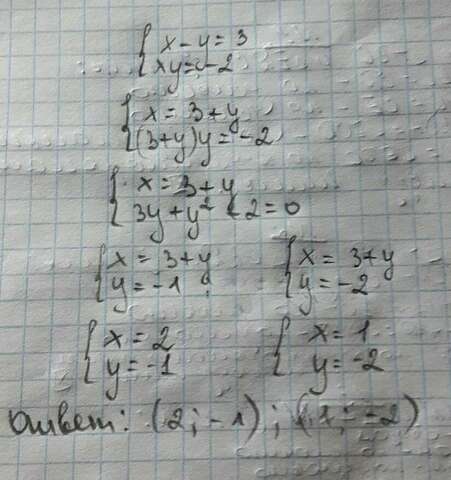 { x - y = 3
{ xy = -2
{ x = 3 + y
{ (3+y)y = -2
{ x = 3 + y
{ 3y + y² + 2 = 0
{ x = 3 + y { x = 3 + y
{ y = -1 { y = -2
{ x = 2 { x = 1
{ y = -1 { y = -2
Ответ: (2; -1); (1; -2)